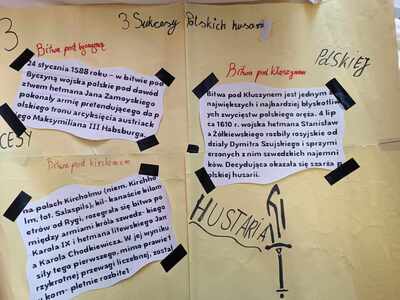 3
3 Sukcesy Polskich husarii
POlSKIEJ
Bitwa pod Byczyną
24 stycznia 1588 roku – w bitwie pod
Byczyną wojska polskie pod dowód
ztwem hetmana Jana Zamoyskiego
pokonały armię pretendującego do p
olskiego tronu arcyksięcia austriack
ego Maksymiliana III Habsburga.
Bitwa pod Kłuszynem
Bitwa pod Kłuszynem jest jednym z
największych i najbardziej błyskotliw
ych zwycięstw polskiego oręża. 4 lip
ca 1610 r. wojska hetmana Stanisław
a Żółkiewskiego rozbiły rosyjskie od
działy Dymitra Szujskiego i sprzymi
erzonych z nim szwedzkich najemni
ków. Decydująca okazała się szarża p
olskiej husarii.
CESY
Bitwa pod kircholmem
na polach Kircholmu (niem. Kirchho
lm, łot. Salaspils), kil- kanaście kilom
etrów od Rygi, rozegrała się bitwa po
między armiami króla szwedz- kiego
Karola IX i hetmana litewskiego Jan
a Karola Chodkiewicza. W jej wyniku
siły tego pierwszego, mimo prawie t
rzykrotnej przewagi liczebnej, został
y kom- pletnie rozbite.
HUSTARIA